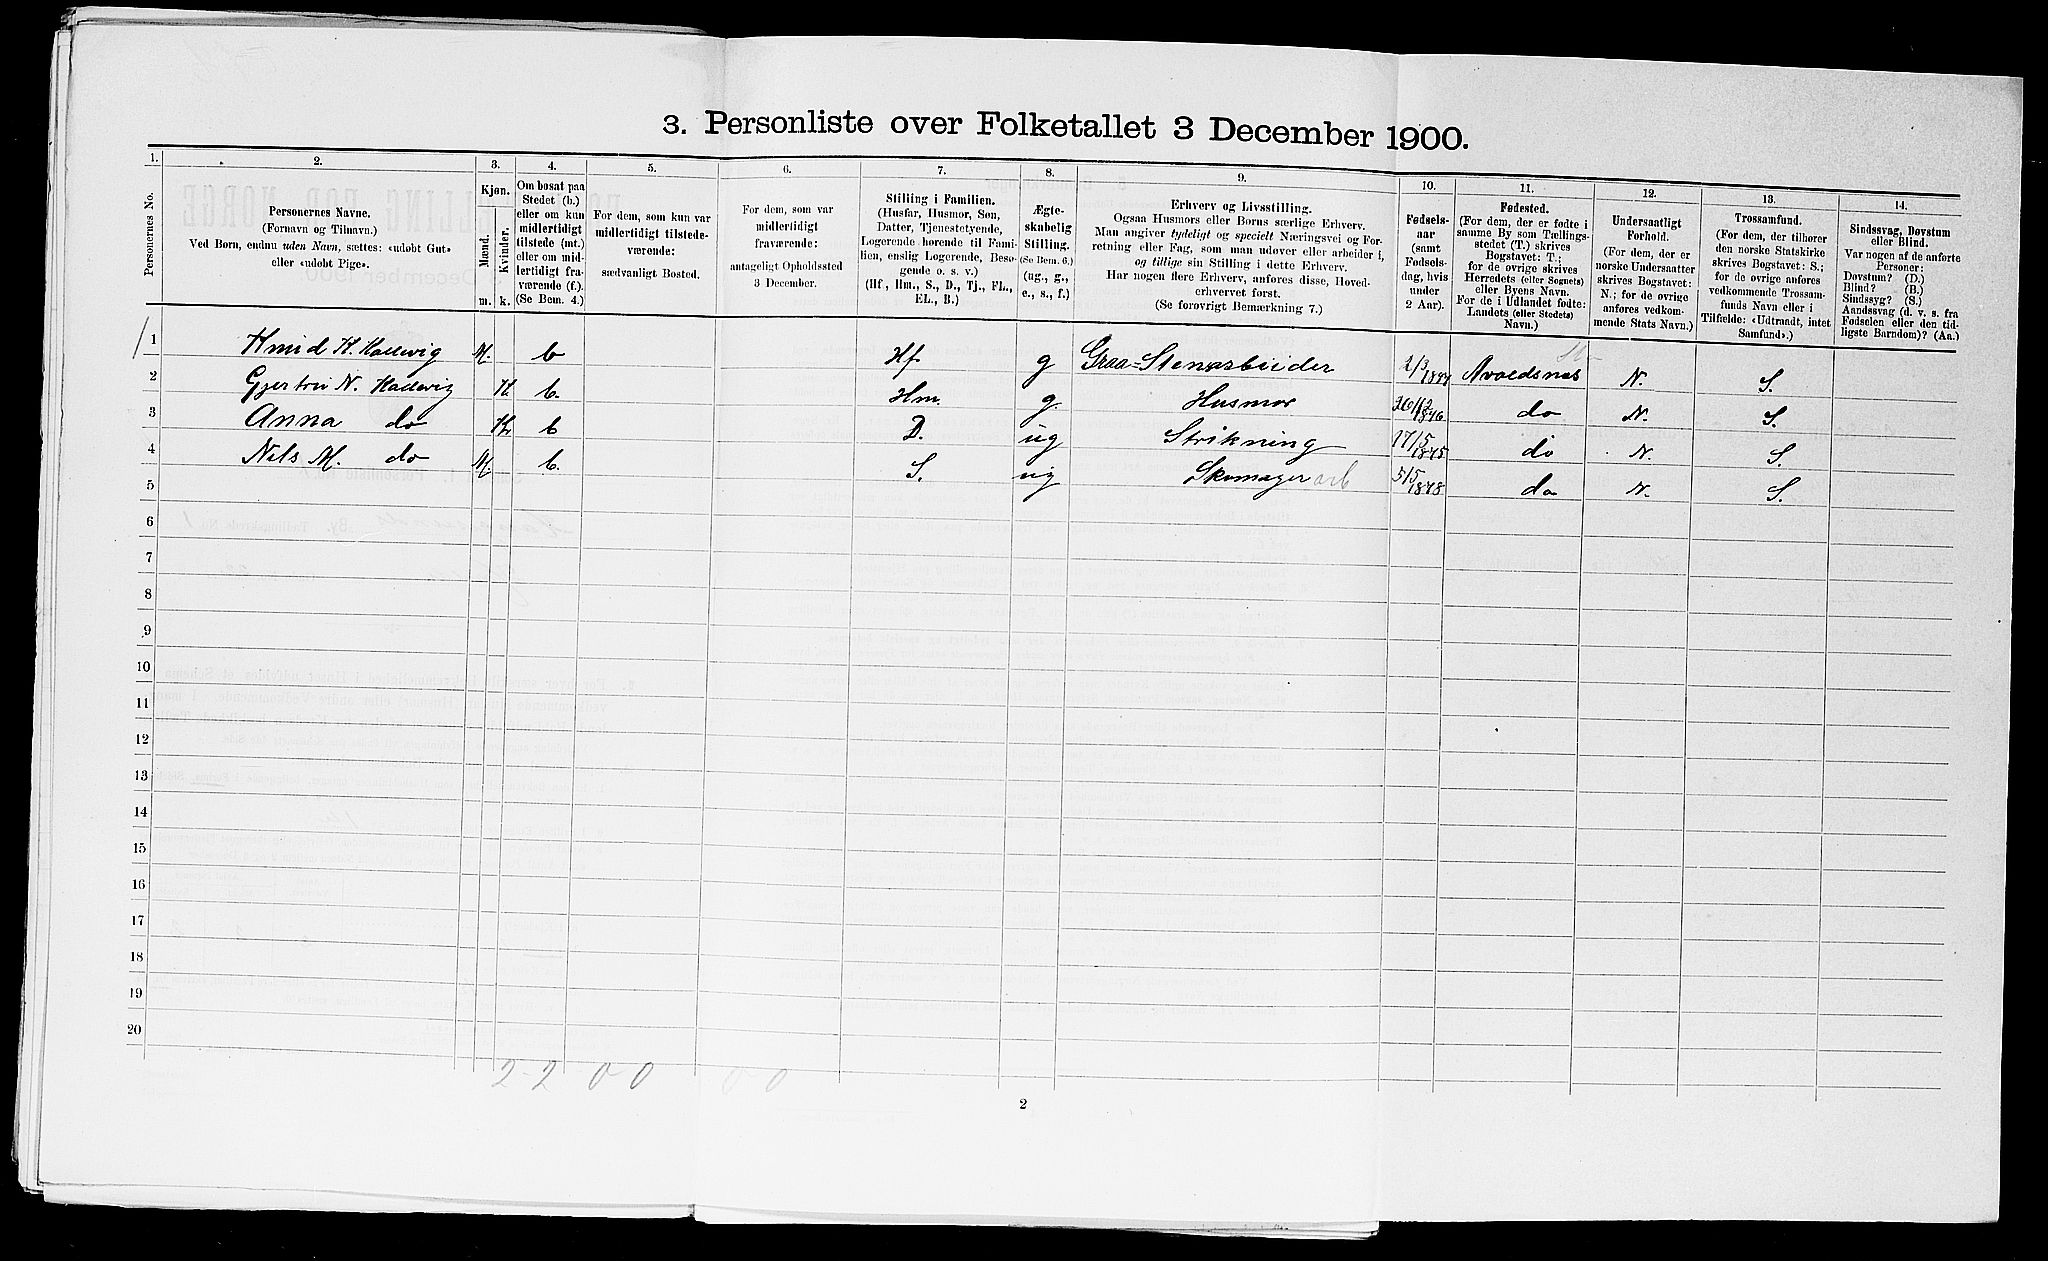 3. Personliste over Folketallet 3 December 1900.
1. 2. 3. 4. 5. 6. 7. 8. 9. 10. 11. 12. 13. 14.
Personernes No.
Personernes Navne.
(Fornavn og Tilnavn.)
Ved Børn, endnu uden Navn, sættes: «udøbt Gut»
eller «udøbt Pige».
Kjøn.
Mænd.
Kvinder.
m. k.
Om bosat paa
Stedet (b.)
eller om kun
midlertidigt
tilstede (mt.)
eller om mid-
lertidigt fra-
værende (f.).
(Se Bem. 4.)
For dem, som kun var
midlertidigt tilstede-
værende:
sædvanligt Bosted.
For dem, som var
midlertidigt
fraværende:
antageligt Opholdssted
3 December.
Stilling i Familien.
(Husfar, Husmor, Søn,
Datter, Tjenestetyende,
Logerende hørende til Fami-
lien, enslig Logerende, Besø-
gende o. s. v.)
(Hf, Hm., S., D., Tj., FL.,
EL., B.)
Ægte-
skabelig
Stilling.
(Se Bem. 6.)
(ug., g.,
e., s., f.)
Erhverv og Livsstilling.
Ogsaa Husmors eller Børns særlige Erhverv.
Man angiver tydeligt og specielt Næringsvei og For-
retning eller Fag, som man udøver eller arbeider i,
og tillige sin Stilling i dette Erhverv.
Har nogen flere Erhverv, anføres disse, Hoved-
erhvervet først.
(Se forøvrigt Bemærkning 7.)
Fødsels-
aar
(samt
Fødsels-
dag, hvis
under
2 Aar).
Fødested.
(For dem, der er fødte i
samme By som Tællings-
stedet (T.) skrives
Bogstavet: T.;
for de øvrige skrives
Herredets (eller Sognets)
eller Byens Navn.
For de i Udlandet fødte:
Landets (eller Stedets)
Navn.)
Undersaatligt
Forhold.
(For dem, der er
norske Undersaatter
skrives Bogstavet:
N.; for de øvrige
anføres vedkom-
mende Stats Navn.)
Trossamfund.
(For dem, der tilhører
den norske Statskirke
skrives Bogstavet: S.;
for de øvrige anføres
vedkommende Trossam-
funds Navn eller i
Tilfælde: «Udtraadt, intet
Samfund».)
Sindssvag, Døvstum
eller Blind.
Var nogen af de anførte
Personer:
Døvstum? (D.)
Blind? (B.)
Sindssyg? (S.)
Aandssvag (d. v. s. fra
Fødselen eller den tid-
ligste Barndom)? (Aa.)
1 H. Hallevig M. b Hf g Graa=Stensarbeider Avaldsnes N. S.
2 Gjertru N. Hallevig K. b. Hm. g. Husmor do N. S.
3 Anna do K b D. ug Strikning 17/5 1875 do N. S.
4 Nils M. do M. b. S. ug Skomager arb 5/5 1878 do N. S.
5
6
7
8
9
10
11
12
13
14
15
16
17
18
19
20
2 - 2 0 0 0 0
2